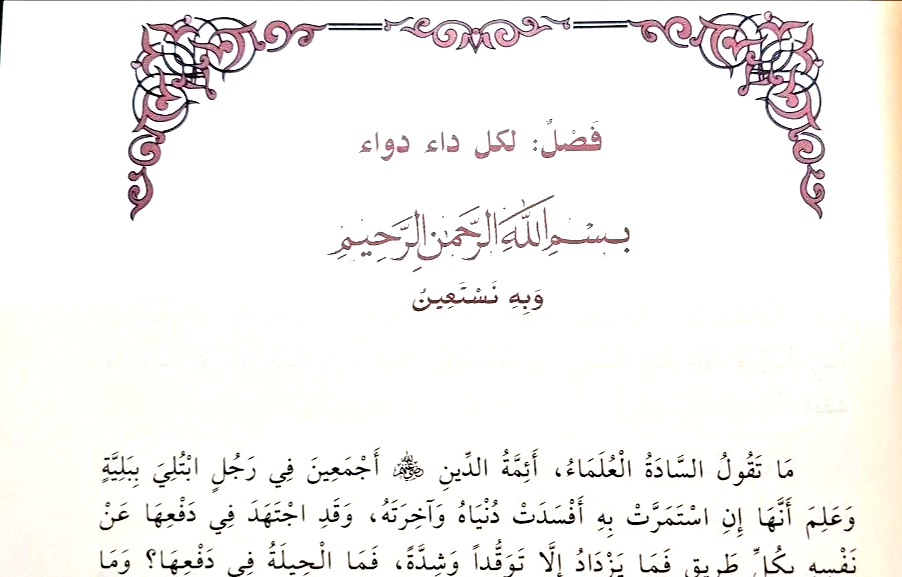 فَصْلٌ: لكل داء دواء
بِسْمِ اللَّهِ الرَّحْمَنِ الرَّحِيمِ
وَبِهِ نَسْتَعِينُ
مَا تَقُولُ السَّادَةُ الْعُلَمَاءُ، أَئِمَّةُ الدِّينِ أَجْمَعِينَ فِي رَجُلٍ ابْتُلِيَ بِبَلِيَّةٍ
وَعَلِمَ أَنَّهَا إِنِ اسْتَمَرَّتْ بِهِ أَفْسَدَتْ دُنْيَاهُ وَآخِرَتَهُ، وَقَدِ اجْتَهَدَ فِي دَفْعِهَا عَنْ
نَفْسِهِ بِكُلِّ طَرِيقٍ فَمَا يَزْدَادُ إِلَّا تَوَقُّداً وَشِدَّةً، فَمَا الْحِيلَةُ فِي دَفْعِهَا؟ وَمَا